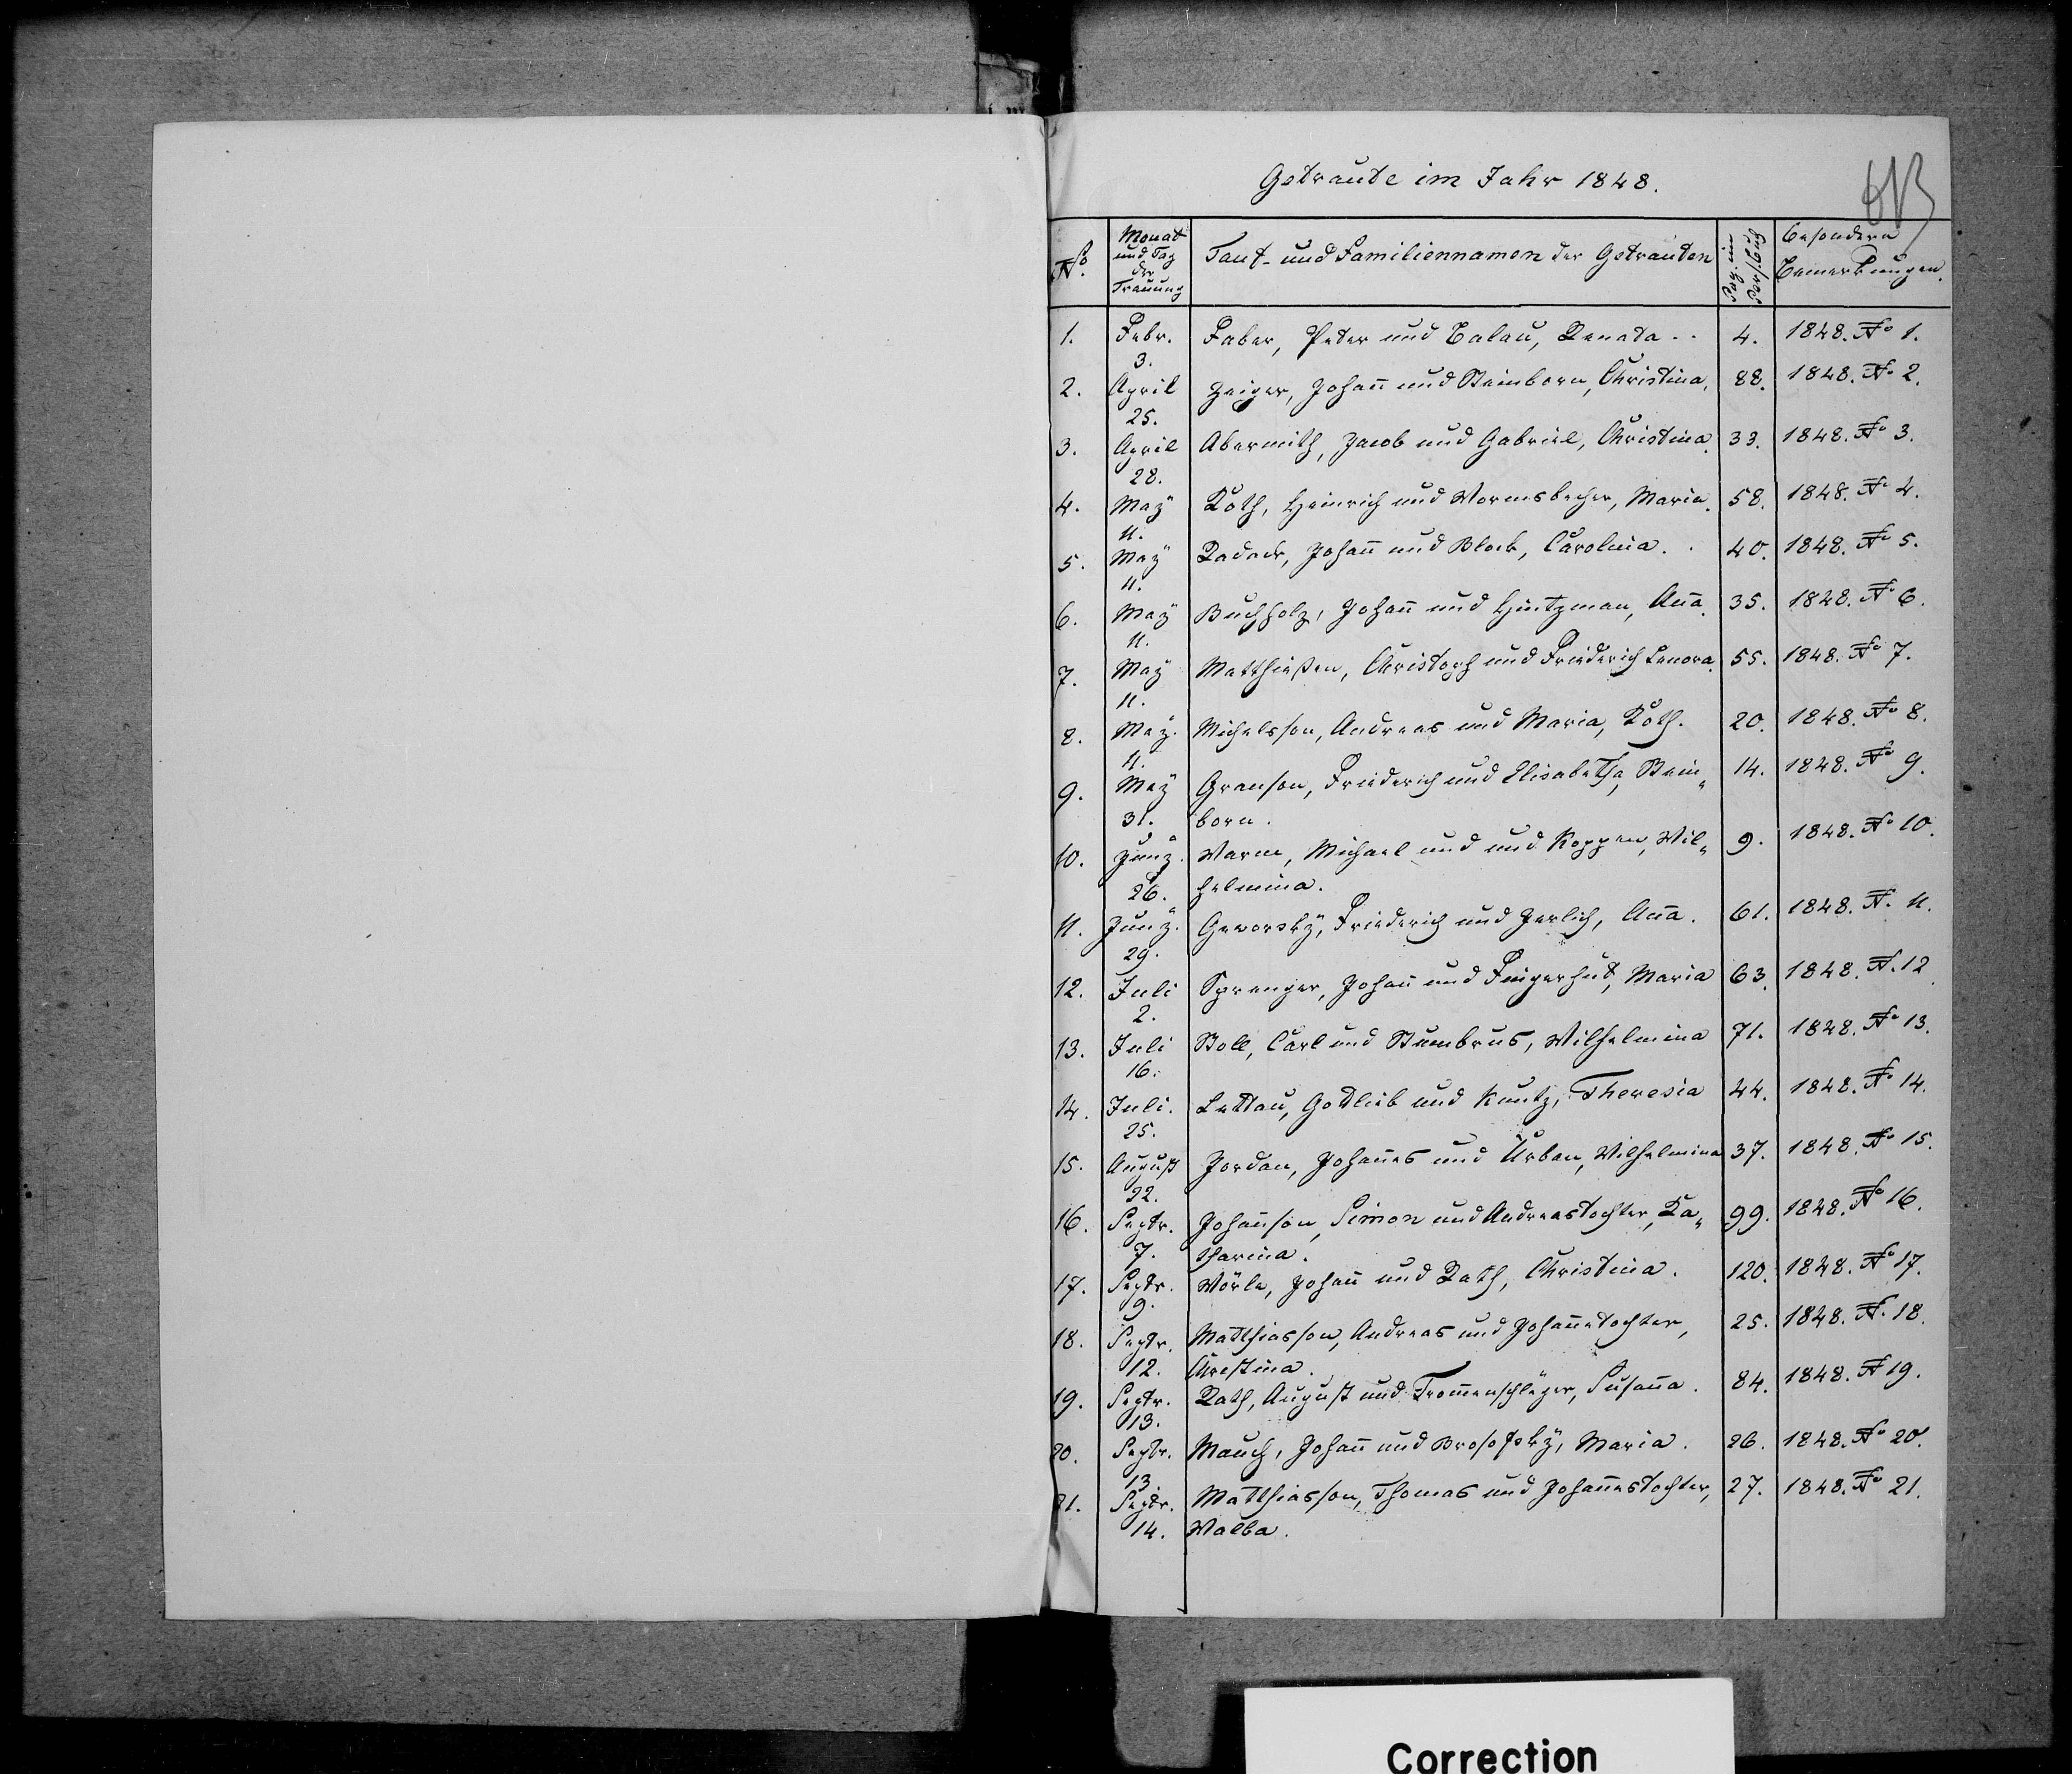 Getraute im Jahr 1848.
No. Monat und Tag der Trauung Tauf- und Familiennamen der Getrauten Pag. im Pers. Buch besondere Bemerkungen.
1. Febr. Faber, Peter und Balau, Renata . . 4. 1848. No 1.
3.
2. April Zeiger, Johañ und Steinborn, Christina, 88. 1848. No 2.
25.
3. April Abermith, Jacob und Gabriel, Christina. 33. 1848. No 3.
28.
4. May Roth, Heinrich und Wormsbecher, Maria. 58. 1848. No 4.
11.
5. May Johañ und Block, Carolina. . 40. 1848. No 5.
11.
6. May Buchholz, Johañ und Hintzman, Aña. 35. 1848. No 6.
11.
7. May Matthießen, Christoph und Friederich Lenora. 55. 1848. No 7.
11.
8. May. Michelsson, Andreas und Maria, Roth. 20. 1848. No 8.
11.
9. May Granson, Friederich und Elisabetha, Stein- 14. 1848. No 9.
31. born.
10. Juny. Warm, Michael und und Koppen, Wil- 9. 1848. No 10.
26. helmina.
11. Juny. Geworsky, Friederich und Gerlich, Aña. 61. 1848. No 11.
29.
12. Juli Sprenger, Johañ und Fingerhut, Maria 63. 1848. No 12
2.
13. Juli Boll, Carl und Stumbrus, Wilhelmina 71. 1848. No 13.
16.
14. Juli. Lettau, Gottlieb und Kuntz, Theresia 44. 1848. No 14.
25.
15. August Jordan, Johañes und Urban, Wilhelmina 37. 1848. No 15.
22.
16. Septr. Johañson, Simon und Andreastochter, Ka- 99. 1848. No 16.
7. tharina.
17. Septr. Wörle, Johañ und Rath, Christina. 120. 1848. No 17.
9.
18. Septr. Matthiasson, Andreas und Johañetochter, 25. 1848. No 18.
12. Christina.
19. Septr. Rath, August und Tromenschläger, Susaña. 84. 1848. No 19.
13.
20. Septr. Mauch, Johañ und Brosofsky, Maria. 26. 1848. No 20.
13.
21. Septr. Matthiasson, Thomas und Johañestochter, 27. 1848. No 21.
14. Walba.
Correction